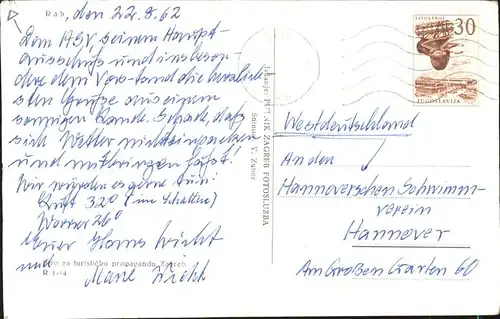 Rab, den 22.8.62
Dem HSV, seinem Haupt-
ausschuß und insbeson-
dere dem Vorstand die herzlich-
sten Grüße aus einem
sonnigen Lande. Schade, daß
sich Wetter nicht einpacken
und mitbringen läßt!
Wir würden es gerne tun!
Luft 32° (im Schatten)
Wasser 26°
Euer Hans
und
Marie
za turističku propagandu Zagreb
R 1-14
Izdanje: PUTNIK ZAGREB FOTOSLUŽBA
Snimak: V. Zuber
30
JUGOSLAVIJA
Westdeutschland
An den
Hannoverschen Schwimm-
verein
Hannover
Am Großen Garten 60